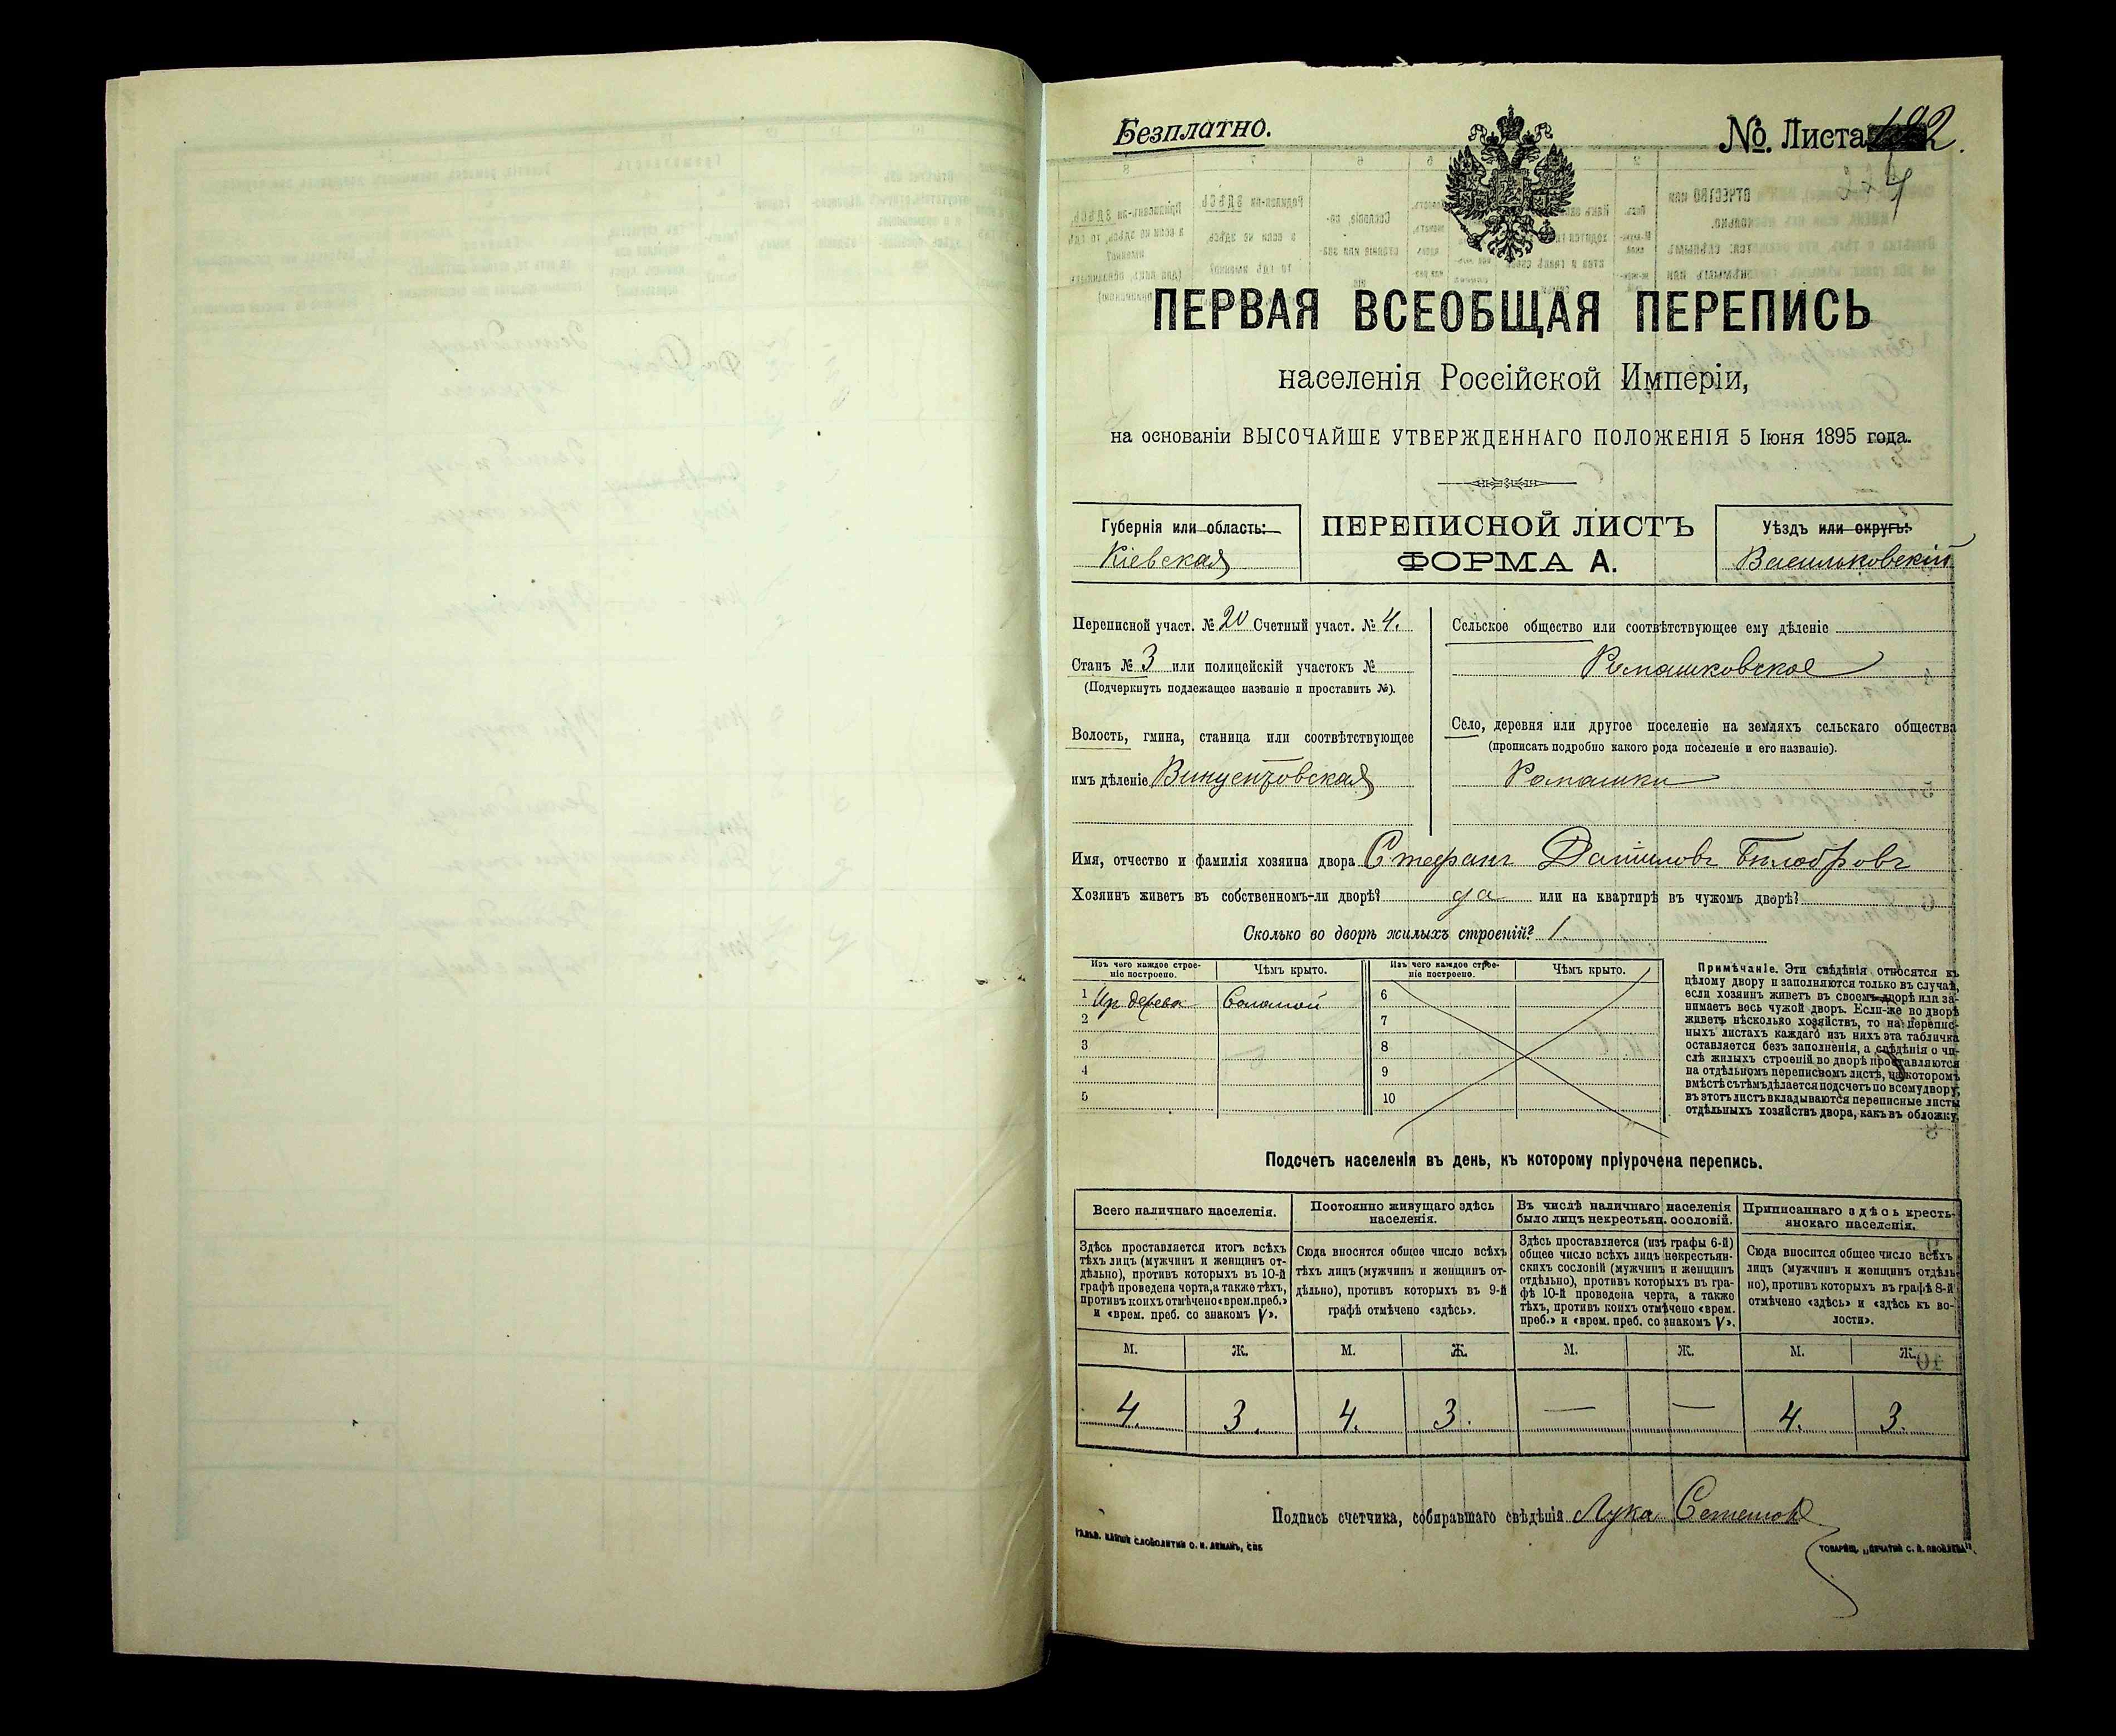 Безплатно.
№. Листа 192.
224
ПЕРВАЯ ВСЕОБЩАЯ ПЕРЕПИСЬ
населенія Россійской Имперіи,
на основаніи ВЫСОЧАЙШЕ УТВЕРЖДЕННАГО ПОЛОЖЕНІЯ 5 Іюня 1895 года.
Губернія или область:
Кіевская
ПЕРЕПИСНОЙ ЛИСТЪ
ФОРМА А.
Уѣздъ или округъ:
Васильковскій
Переписной участ. № 20 Счетный участ. № 4.
Станъ № 3 или полицейскій участокъ №
(Подчеркнуть подлежащее названіе и проставить №).
Волость, гмина, станица или соотвѣтствующее
имъ дѣленіе Винцентовская
Сельское общество или соотвѣтствующее ему дѣленіе
Ромашковское
Село, деревня или другое поселеніе на земляхъ сельскаго общества
(прописать подробно какого рода поселеніе и его названіе).
Ромашки
Имя, отчество и фамилія хозяина двора Стефанъ Даниловъ Билобровъ
Хозяинъ живетъ въ собственномъ-ли дворѣ? да или на квартирѣ въ чужомъ дворѣ?
Сколько во дворѣ жилыхъ строеній? 1.
Изъ чего каждое строе-
ніе построено.
Чѣмъ крыто.
1 Из дерева Соломой
2
3
4
5
Изъ чего каждое строе-
ніе построено.
Чѣмъ крыто.
6
7
8
9
10
Примѣчаніе. Эти свѣдѣнія относятся къ
цѣлому двору и заполняются только въ случаѣ,
если хозяинъ живетъ въ своемъ дворѣ или за-
нимаетъ весь чужой дворъ. Если-же во дворѣ
живетъ нѣсколько хозяйствъ, то на перепис-
ныхъ листахъ каждаго изъ нихъ эта табличка
оставляется безъ заполненія, а свѣдѣнія о чи-
слѣ жилыхъ строеній во дворѣ проставляются
на отдѣльномъ переписномъ листѣ, на которомъ
вмѣстѣ съ тѣмъ дѣлается подсчетъ по всему двору;
въ этотъ листъ вкладываются переписные листы
отдѣльныхъ хозяйствъ двора, какъ въ обложку.
Подсчетъ населенія въ день, къ которому пріурочена перепись.
Всего наличнаго населенія.
Здѣсь проставляется итогъ всѣхъ
тѣхъ лицъ (мужчинъ и женщинъ от-
дѣльно), противъ которыхъ въ 10-й
графѣ проведена черта, а также тѣхъ,
противъ коихъ отмѣчено «врем. преб.»
и «врем. преб. со знакомъ V».
Постоянно живущаго здѣсь
населенія.
Сюда вносится общее число всѣхъ
тѣхъ лицъ (мужчинъ и женщинъ от-
дѣльно), противъ которыхъ въ 9-й
графѣ отмѣчено «здѣсь».
Въ числѣ наличнаго населенія
было лицъ некрестьян. сословій.
Здѣсь проставляется (изъ графы 6-й)
общее число всѣхъ лицъ некрестьян-
скихъ сословій (мужчинъ и женщинъ
отдѣльно), противъ которыхъ въ гра-
фѣ 10-й проведена черта, а также
тѣхъ, противъ коихъ отмѣчено «врем.
преб.» и «врем. преб. со знакомъ V».
Приписаннаго здѣсь кресть-
янскаго населенія.
Сюда вносится общее число всѣхъ
лицъ (мужчинъ и женщинъ отдѣль-
но), противъ которыхъ въ графѣ 8-й
отмѣчено «здѣсь» и «здѣсь къ во-
лости».
М. Ж. М. Ж. М. Ж. М. Ж.
4. 3. 4. 3. — — 4. 3.
Подпись счетчика, собиравшаго свѣдѣнія Лука